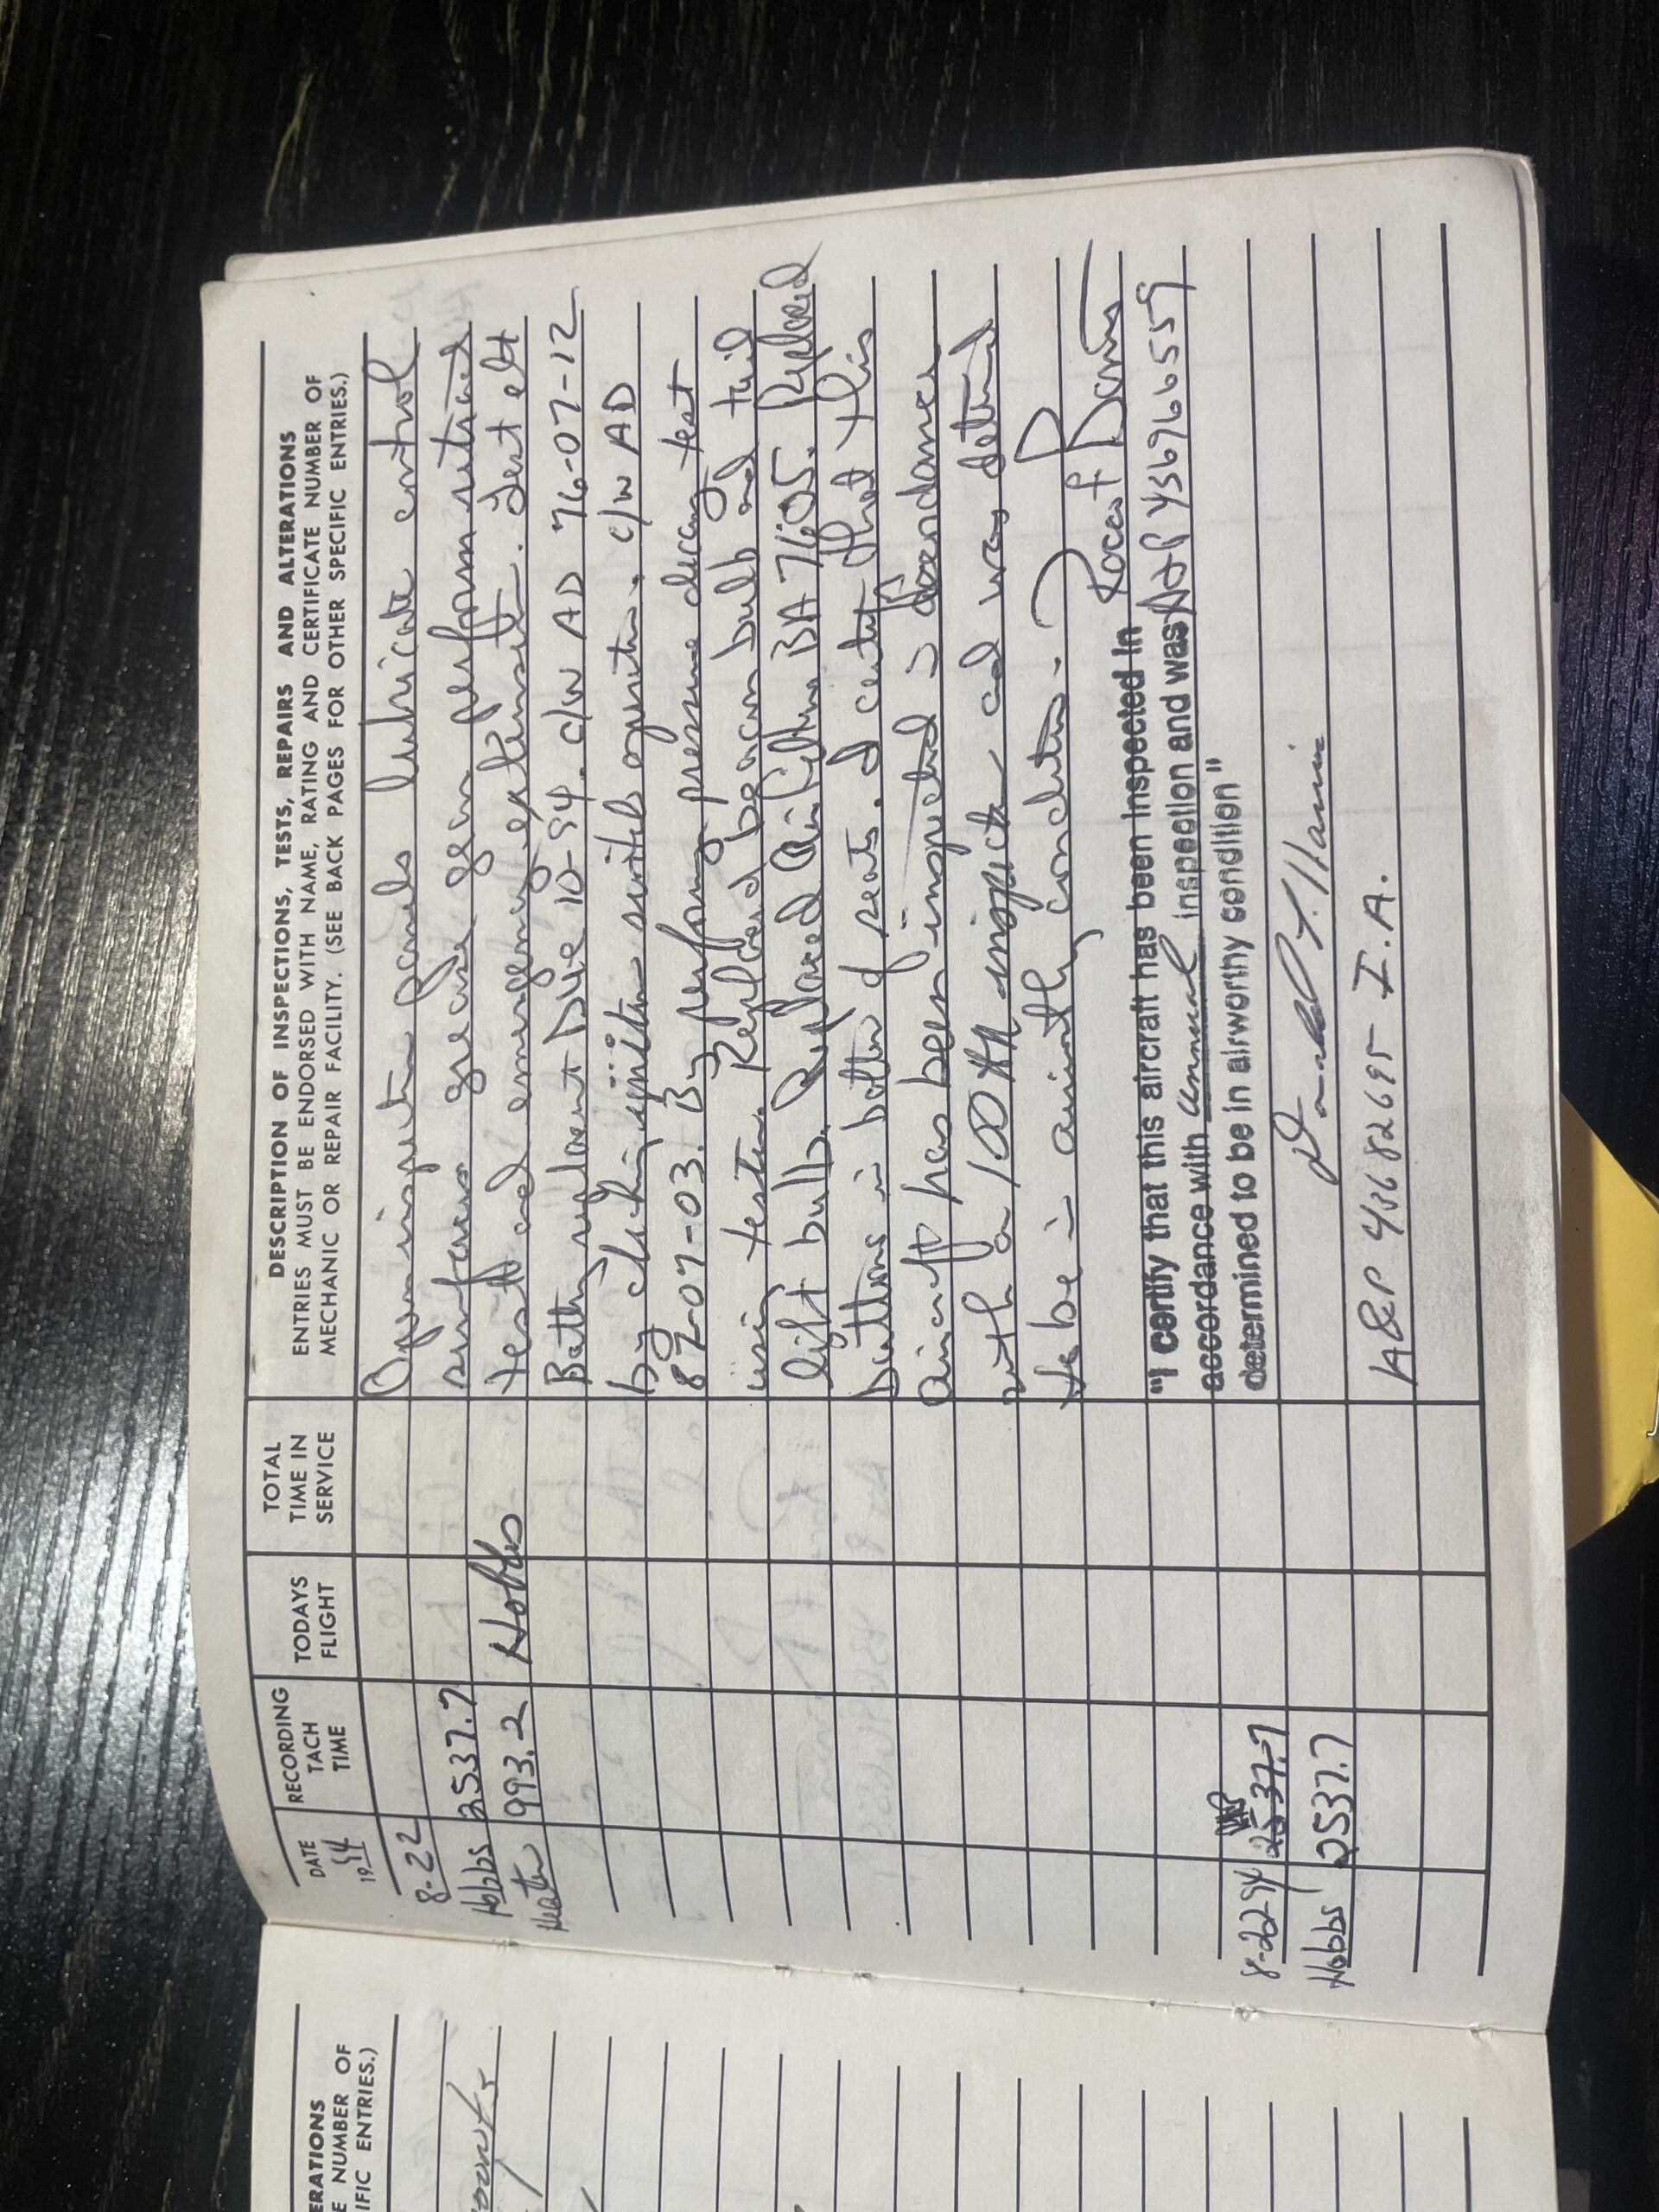 ERATIONS
E NUMBER OF
IFIC ENTRIES.)
DATE
19 94
RECORDING
TACH
TIME
TODAYS
FLIGHT
TOTAL
TIME IN
SERVICE
DESCRIPTION OF INSPECTIONS, TESTS, REPAIRS AND ALTERATIONS
ENTRIES MUST BE ENDORSED WITH NAME, RATING AND CERTIFICATE NUMBER OF
MECHANIC OR REPAIR FACILITY. (SEE BACK PAGES FOR OTHER SPECIFIC ENTRIES.)
Open inspection panels lubricate control
8-22 surfaces grease gear perform retract
Hobbs 2537.7 test and emergency extension. Test elt
Heater 993.2 Hobbs Battery replacement Due 10-94. c/w AD 76-07-12
by checking ignition switch operation. c/w AD
82-07-03. By performing pressure decay test
using tester. Replaced beacon bulb and tail
light bulb. Replaced Air filter BA 7605. Replaced
buttons in bottom of seats. I certify that this
aircraft has been inspected in accordance
with a 100 HR inspection and was determined
to be in airworthy condition.
"I certify that this aircraft has been inspected in
accordance with annual inspection and was A&P 436966559
determined to be in airworthy condition"
8-22-94 2537.7
Hobbs 2537.7
A&P 436682695 I.A.